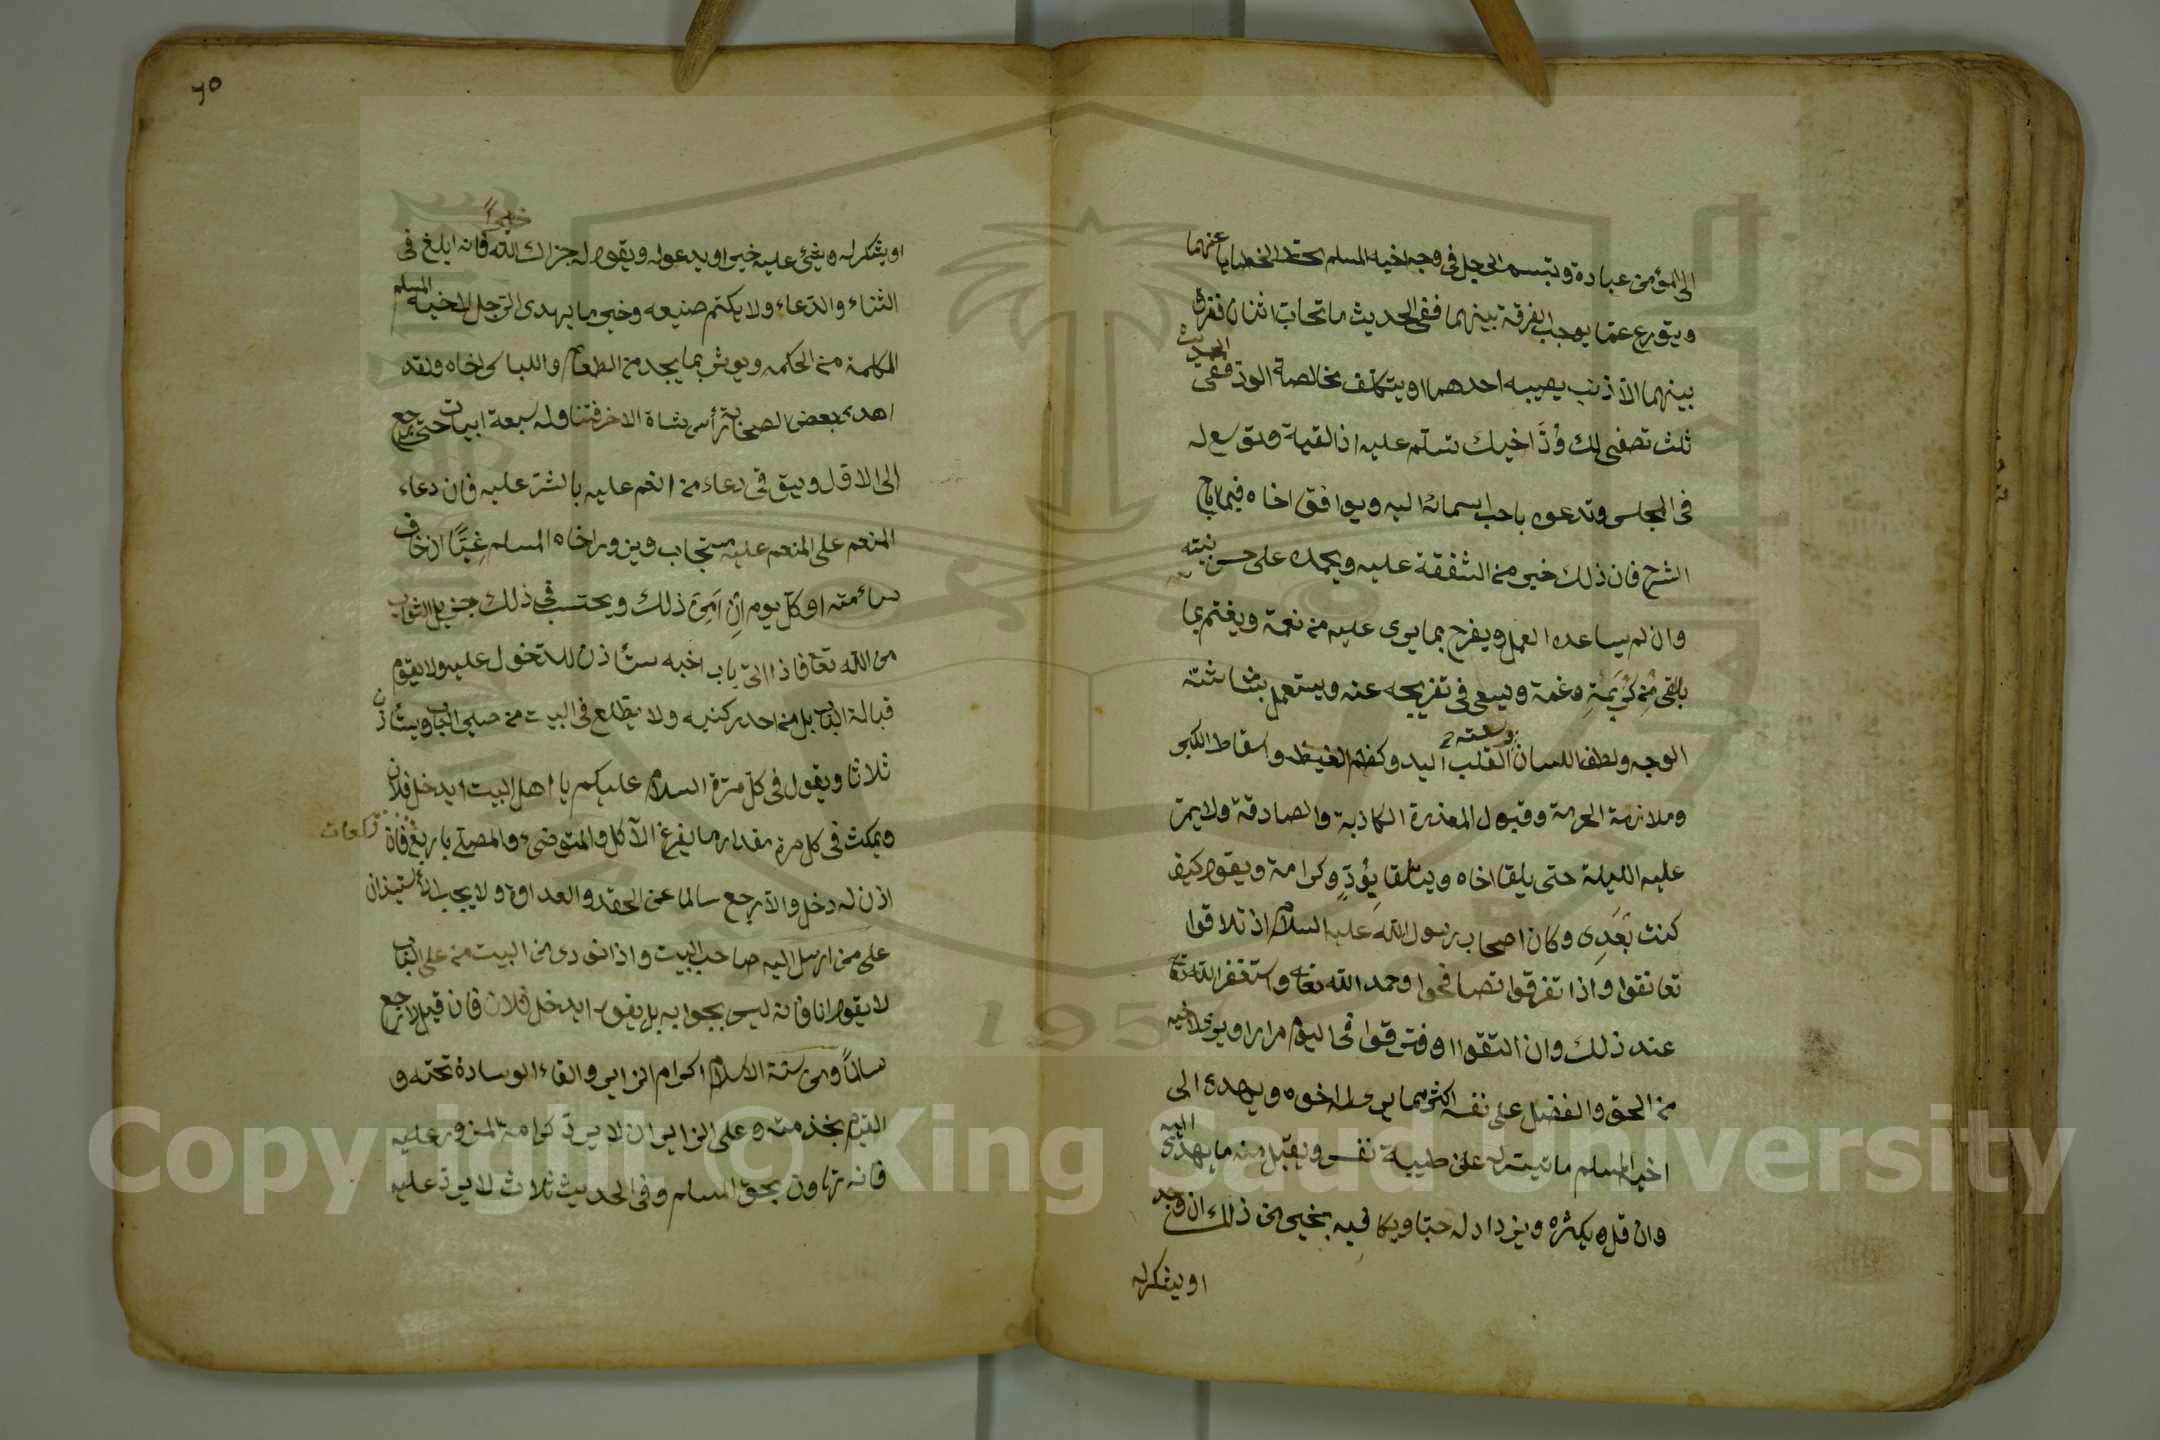 الى المؤمن عبادة وتبسم الرجل في وجه اخيه المسلم يحتّ الخطايا عنهما
ويتورع عما يوجب الفرقة بينهما ففي الحديث ما تحاب اثنان ففرق
بينهما الا ذنب يصيبه احدهما او يتكلف مخالصة الود ففي الحديث
ثلث تصفى لك ودّ اخيك تسلم عليه اذا لقيته وتوسع له
في المجلس وتدعوه باحب اسمائه اليه ويوافق اخاه فيما اباح
الشرع فان ذلك خير من الشفقة عليه ويحمده على حسن نيته
وان لم يساعده العمل ويفرح بما يرى عليه من نعمة ويغتم بما
يلقى من كربة وغمة ويسعى في تفريجه عنه ويستعمل بشاشة
الوجه ولطف اللسان وسعة القلب اليد وكظم الغيظ واسقاط الكبر
وملازمة الحرمة وقبول المعذرة الكاذبة والصادقة ولا يمر
عليه الليلة حتى يلقا اخاه ويتلقا بودّ وكرامة ويقول كيف
كنت بعدي وكان اصحاب رسول الله عليه السلام اذ تلاقوا
تعانقوا واذا تفرقوا تصافحوا وحمد الله تعا واستغفر الله تعا
عند ذلك وان التقوا وفترقوا في اليوم مرارا ويرى لاخيه
من الحق والفضل على نفسه اكثر مما يرى له اخوه ويهدى الى
اخيه المسلم ما تيسر له على طيبة نفس ويقبل منه ما يهدى اليه
وان قل ويكثره ويزداد له حبا ويكافيه بخير من ذلك ان وجد
او يشكر له
٦٥
او يشكر له ويثني عليه خيرا ويدعو له ويقول له جزاك الله خيرا فانه ابلغ في
الثناء والدعاء ولا يكتم صنيعه وخير ما يهدى الرجل لاخيه المسلم
الكلمة من الحكمة ويوثر بما يجد من الطعام واللباس اخاه ولقد
اهدى بعض الصحابة رأس شاة الاخر فتناوله سبعة ابيات حتى رجع
الى الاول ويتقى دعاء من انعم عليه بالشر عليه فان دعاء
المنعم على المنعم عليه مستجاب ويزور اخاه المسلم غبّا اذ خاف
سائمته او كل يوم ان امن ذلك ويحتسب في ذلك جزيل الثواب
من الله تعا فاذا اتى باب اخيه ستأذن للدخول عليه ولا يقوم
قبالة الباب بل من احد ركنيه ولا يطلع في البيت من صير الباب ويستأذن
ثلاثا ويقول في كل مرة السلام عليكم يا اهل البيت ايدخل فلان
ويمكث في كل مرة مقدار ما يفرغ الاكل والمتوضئ والمصلي باربع ركعات فان
اذن له دخل والا رجع سالما عن الحقد والعداوة ولا يجب الاستيذان
على من ارسل اليه صاحب البيت واذا نودي من البيت من على الباب
لا يقول انا فانه ليس بجواب بل يقول ايدخل فلان فان قيل لا رجع
سالما ومن سنة الاسلام اكرام الزاير والقاء الوسادة تحته و
القيام بخدمته وعلى الزاير ان لا يرد كرامة المزور عليه
فانه تهاون بحق المسلم وفي الحديث ثلاث لا يرد عليه
Copyright © King Saud University